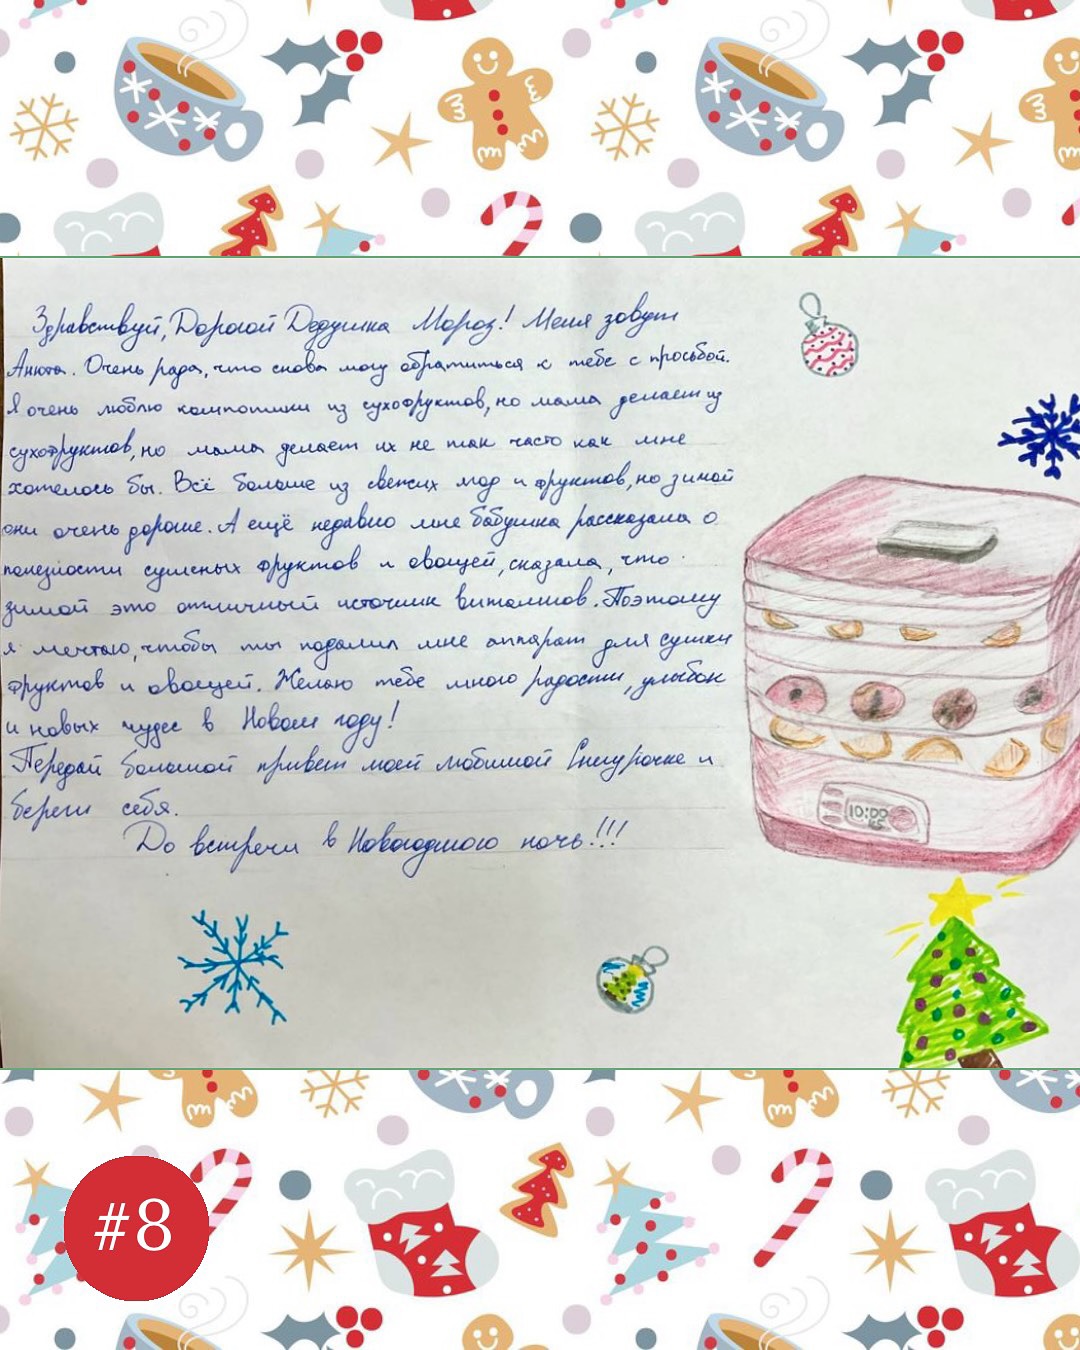 Здравствуй, Дорогой Дедушка Мороз! Меня зовут
Анюта. Очень рада, что снова могу обратиться к тебе с просьбой.
Я очень люблю компотики из сухофруктов, но мама делает из
сухофруктов, но мама делает их не так часто как мне
хотелось бы. Всё больше из свежих ягод и фруктов, но зимой
они очень дорогие. А ещё недавно мне бабушка рассказала о
полезности сушеных фруктов и овощей, сказала, что
зимой это отличный источник витаминов. Поэтому
я мечтаю, чтобы ты подарил мне аппарат для сушки
фруктов и овощей. Желаю тебе много радости, улыбок
и новых чудес в Новом году!
Передай большой привет моей любимой Снегурочке и
береги себя.
До встречи в Новогоднюю ночь!!!
10:00
#8